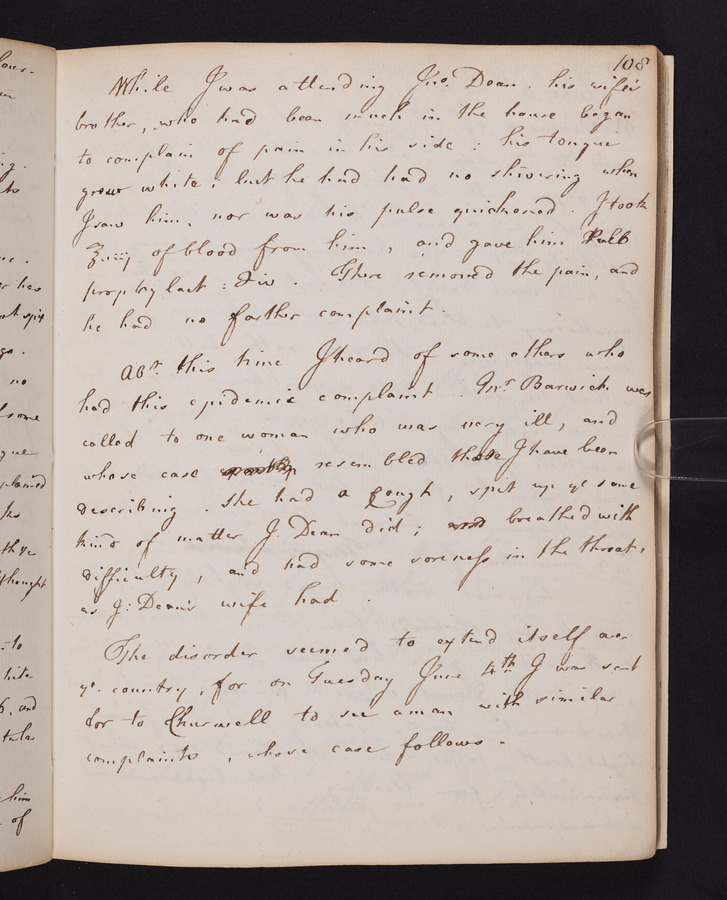 108
While I was attending Jno. Dean, his wife's
brother, who had been much in the house began
to complain of pain in his side: his tongue
grew white; but he had had no shivering when
I saw him, nor was his pulse quickened. I took
of blood from him, and gave him Pulb
he had no farther complaint.
Abt. this time I heard of some others who
had this epidemic complaint. Mr Barwick was
called to one woman who was very ill, and
whose case resembled those I have been
describing. She had a Cough, spit up ye same
kind of matter J. Dean did; breathed with
difficulty, and had some soreness in the throat,
as J: Dean's wife had.
The disorder seemed to extend itself over
ye. country, for on Tuesday June 4th I was sent
for to Churwell to see a man with similar
complaints, whose case follows.